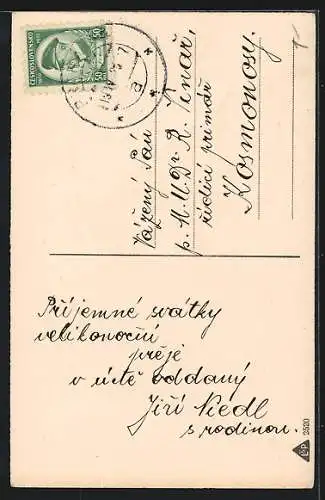 ČESKOSLOVENSKO
50 50
Vážený Pán
p. M.U.Dr. R. Tinař,
řídící primář
Kosmonosy.
Příjemné svátky
velikonoční
přeje
v úctě oddaný
Jiří Riedl
s rodinou.
2520